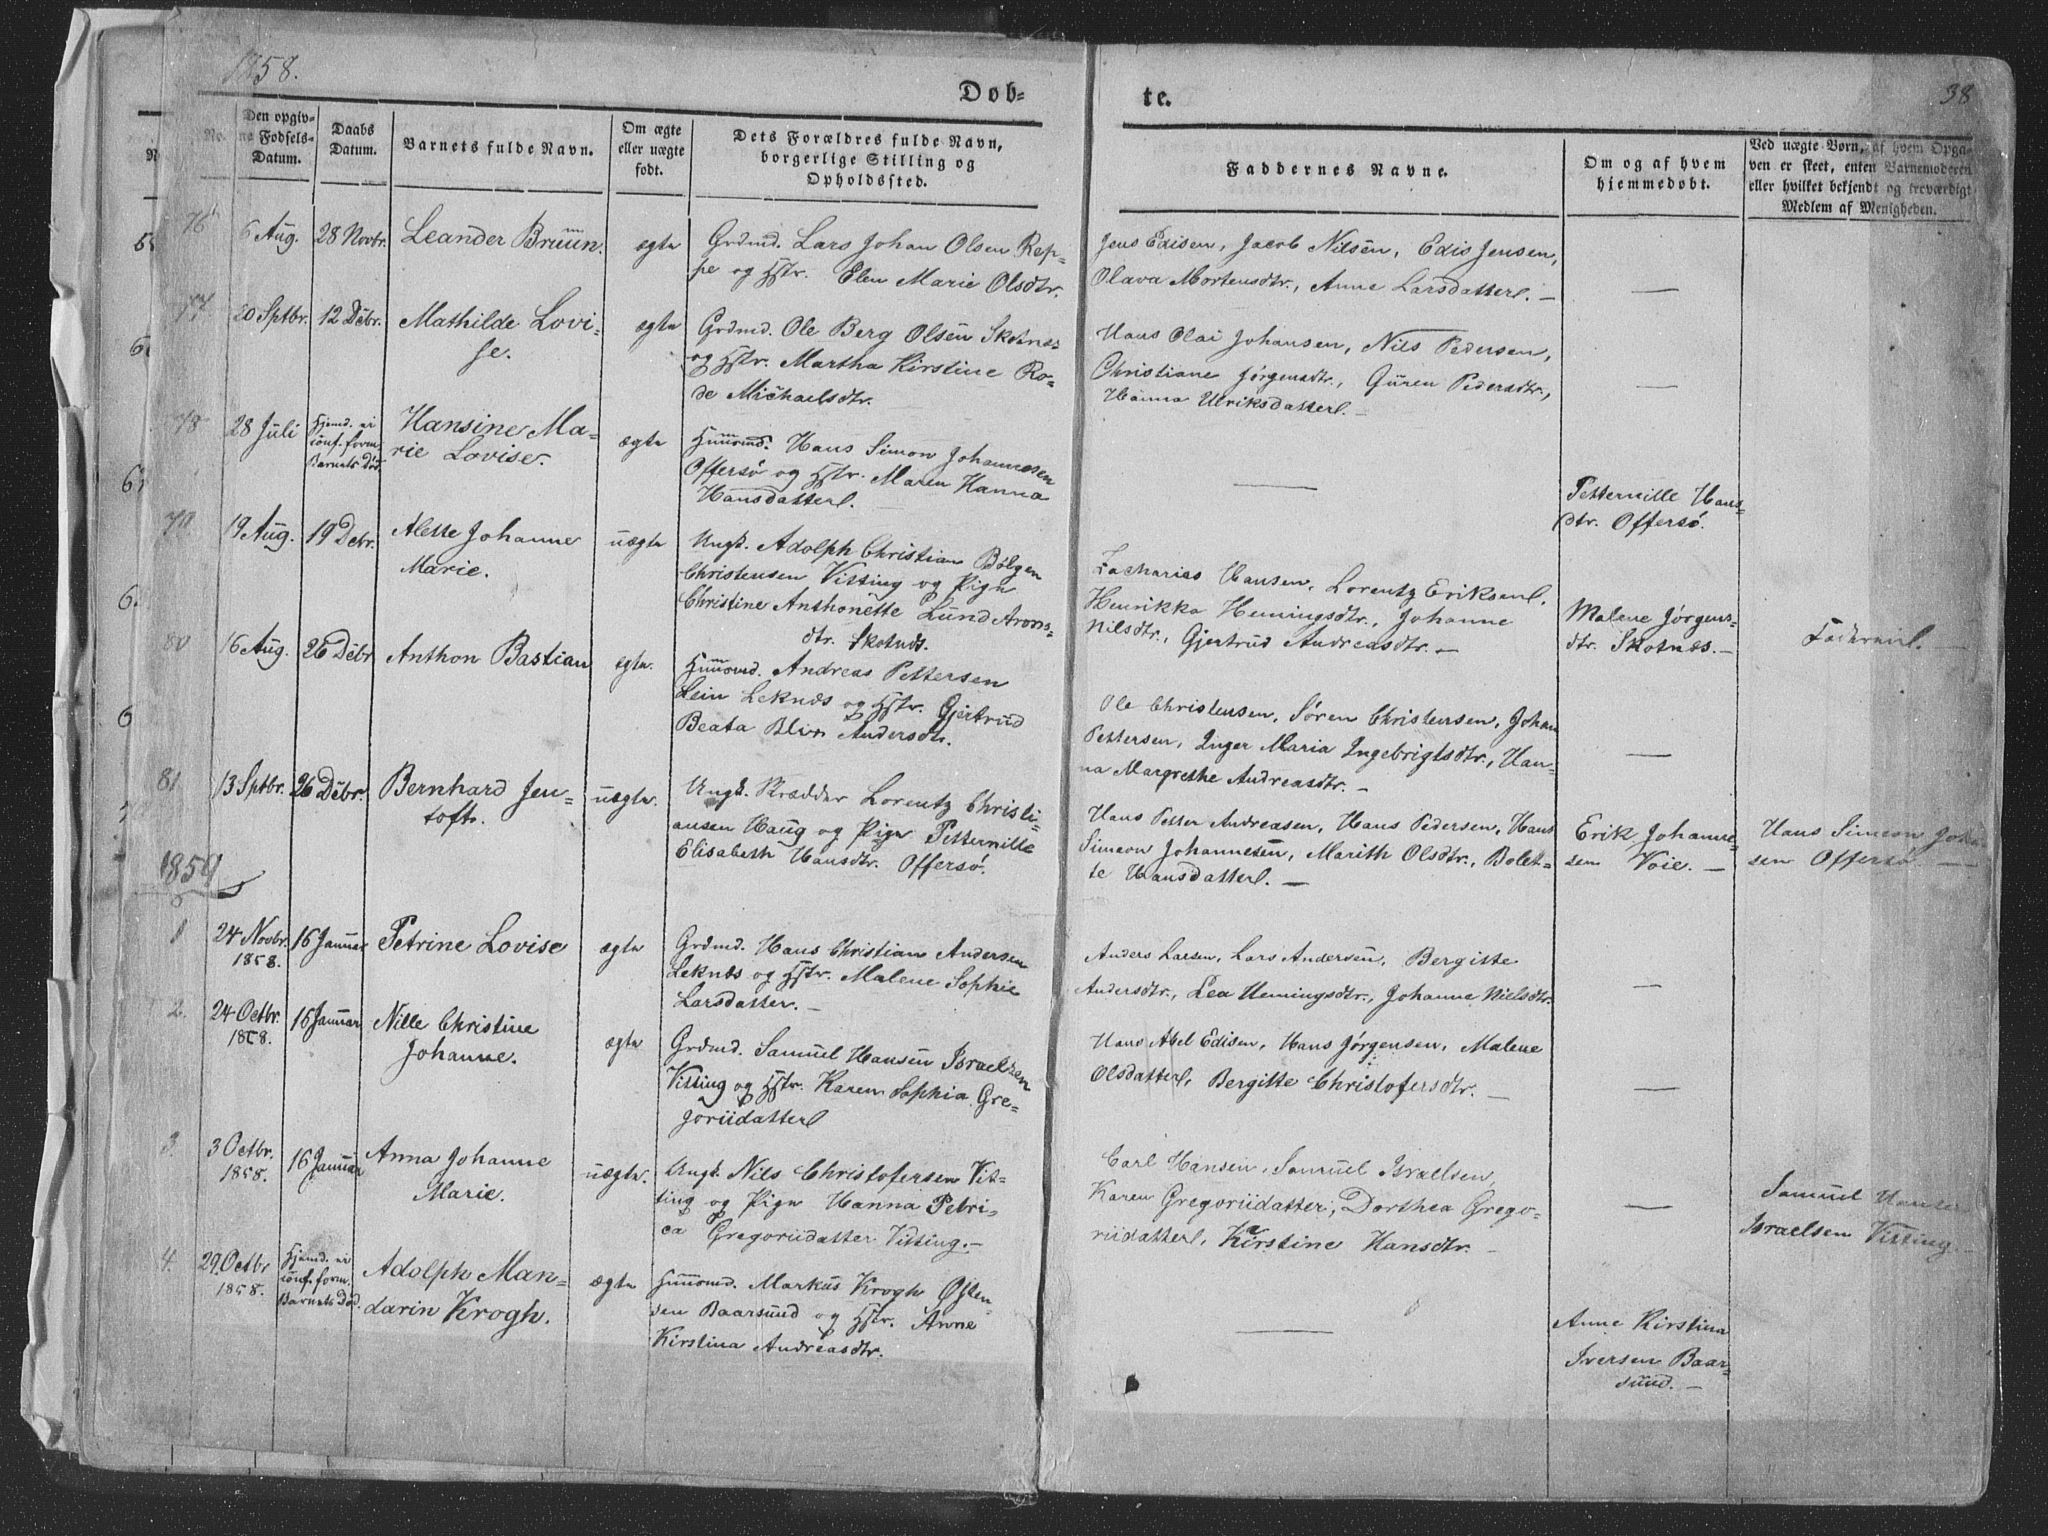 1858.
Døb-
te.
38
No.
Den opgiv-
ne Fødsels-
Datum.
Daabs
Datum.
Barnets fulde Navn.
Om ægte
eller uægte
født.
Dets Forældres fulde Navn,
borgerlige Stilling og
Opholdssted.
Faddernes Navne.
Om og af hvem
hjemmedøbt.
Ved uægte Børn, af hvem Opga-
ven er skeet, enten Barnemoderen
eller hvilket bekjendt og troværdigt
Medlem af Menigheden.
76 6 Aug. 28 Novbr. Leander Bruun. ægte
Grdmd. Lars Johan Olsen Rep-
pe og Hstr. Elen Marie Olsdtr.
Jens Edisen, Jacob Nilsen, Edis Jensen,
Olava Mortensdtr., Anne Larsdatter. —
—
77 20 Sptbr. 12 Debr. Mathilde Lovi-
se.
ægte
Grdmd. Ole Berg Olsen Skotnæs
og Hstr. Martha Kirstine Ro-
de Michaelsdtr.
Hans Olai Johansen, Nils Pedersen,
Christiane Jørgensdtr., Guren Pedersdtr.,
Hanna Ulriksdatter. —
—
78 28 Juli
Hjemd. ei
conf. form.
Barnets Død.
Hansine Ma-
rie Lovise.
ægte
Huusmd. Hans Simon Johannesen
Offersø og Hstr. Maren Hanna
Hansdatter. —
—
Petternille Hans-
dtr. Offersø.
79 19 Aug. 19 Debr. Alette Johanne
Marie.
uægte
Ungk. Adolph Christian Bølgen
Christensen Vitting og Pign
Christine Anthonette Lund Arons-
dtr. Skotnæs.
Zacharias Hansen, Lorentz Eriksen,
Henrikka Hemingsdtr., Johanne
Nilsdtr., Gjertrud Andreasdtr. —
Malene Jørgens-
dtr. Skotnæs. —
Faderen. —
80 16 Aug. 26 Debr Anthon Bastian ægte.
Huusmd. Andreas Pettersen
Lein Leknæs og Hstr. Gjertrud
Beata Blix Andersdtr.
Ole Christensen, Søren Christensen, Johan
Pettersen, Inger Maria Ingebrigtsdtr., Han-
na Margrethe Andreasdtr. —
—
81 13 Sptbr. 26 Debr. Bernhard Jen-
toft.
uægte.
Ungk. Skrædder Lorentz Christi-
ansen Haug og Pign Petternille
Elisabeth Hansdtr. Offersø.
Hans Petter Andreasen, Hans Pedersen, Hans
Simeon Johannesen, Marith Olsdtr., Bolet-
te Hansdatter. —
Erik Johanne-
sen Voie. —
Hans Simeon Joh
sen Offersø. —
1859
1 24 Novbr.
1858.
16 Januar Petrine Lovise ægte
Grdmd. Hans Christian Andersen
Leknæs og Hstr. Malene Sophie
Larsdatter. —
Anders Larsen, Lars Andersen, Bergitte
Andersdtr., Lea Hemingsdtr., Johanne Nielsdtr.
—
2. 24 Octbr.
1858.
16 Januar Nille Christine
Johanne.
ægte
Grdmd. Samuel Hansen Israelsen
Vitting og Hstr. Karen Sophia Gre-
goriidatter
Hans Abel Edisen, Hans Jørgensen, Malene
Olsdatter, Bergitte Christofersdtr. —
—
3. 3 Octbr.
1858.
16 Januar Anna Johanne
Marie.
uægte.
Ungk. Nils Christofersen Vit-
ting og Pign Hanna Petri-
ca Gregoriidatter Vitting. —
Carl Hansen, Samuel Israelsen,
Karen Gregoriidatter, Dorthea Grego-
riidatter, Kirstine Hansdtr. —
—
Samuel Hansen
Israelsen Vitting. —
4. 29. Octbr
1858.
Hjemd. ei
conf. form.
Barnets Død.
Adolph Man-
darin Krogh.
ægte
Huusmd. Markus Krogh Østen-
sen Baarsund og Hstr. Anne
Kirstina Andreasdtr.
—
Anne Kirstina
Iversen Baar-
sund. —